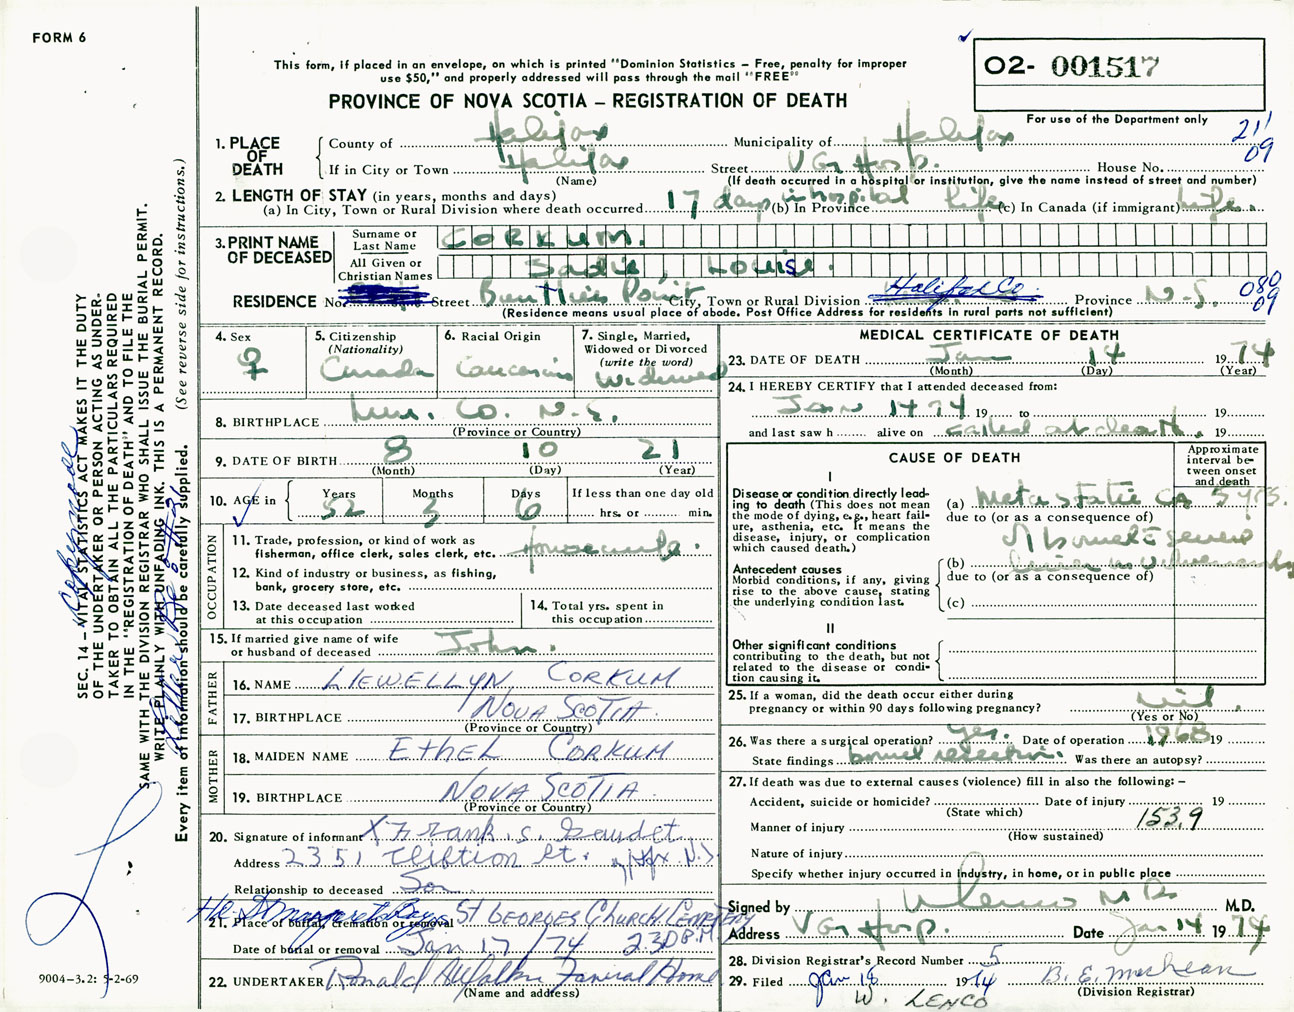 FORM 6
This form, if placed in an envelope, on which is printed "Dominion Statistics – Free, penalty for improper
use $50," and properly addressed will pass through the mail "FREE"
PROVINCE OF NOVA SCOTIA – REGISTRATION OF DEATH
O2- 001517
For use of the Department only
211
09
1. PLACE OF DEATH
County of Halifax Municipality of Halifax
If in City or Town Halifax Street VG Hosp. House No.
(Name) (If death occurred in a hospital or institution, give the name instead of street and number)
2. LENGTH OF STAY (in years, months and days)
(a) In City, Town or Rural Division where death occurred 17 days in hospital (b) In Province life (c) In Canada (if immigrant) life
3. PRINT NAME OF DECEASED
Surname or Last Name CORKUM.
All Given or Christian Names Sadie, Louise.
RESIDENCE No. Street Point City, Town or Rural Division Halifax Co. Province N.S. 080
09
(Residence means usual place of abode. Post Office Address for residents in rural parts not sufficient)
4. Sex ♀
5. Citizenship (Nationality) Canada
6. Racial Origin Caucasian
7. Single, Married, Widowed or Divorced (write the word) Widowed
8. BIRTHPLACE Lun. Co. N.S.
(Province or Country)
9. DATE OF BIRTH 8 10 21
(Month) (Day) (Year)
10. AGE in Years 52 Months 3 Days 6 If less than one day old hrs. or min.
OCCUPATION
11. Trade, profession, or kind of work as fisherman, office clerk, sales clerk, etc. Housewife.
12. Kind of industry or business, as fishing, bank, grocery store, etc.
13. Date deceased last worked at this occupation
14. Total yrs. spent in this occupation
15. If married give name of wife or husband of deceased John.
FATHER
16. NAME LLEWELLYN CORKUM
17. BIRTHPLACE NOVA SCOTIA.
(Province or Country)
MOTHER
18. MAIDEN NAME ETHEL CORKUM
19. BIRTHPLACE NOVA SCOTIA.
(Province or Country)
20. Signature of informant X Frank S. Gaudet
Address 2351 St. Hfx N.S
Relationship to deceased Son
21. Place of burial, cremation or removal St Margarets Bay ST GEORGES CHURCH CEMETERY
Date of burial or removal Jan 17 /74 230 P.M.
22. UNDERTAKER Ronald Funeral Home
(Name and address)
MEDICAL CERTIFICATE OF DEATH
23. DATE OF DEATH Jan 14 1974
(Month) (Day) (Year)
24. I HEREBY CERTIFY that I attended deceased from:
Jan 14 74 19 to 19
and last saw h alive on called at death. 19
CAUSE OF DEATH
Approximate interval between onset and death
I
Disease or condition directly leading to death (This does not mean the mode of dying, e.g., heart failure, asthenia, etc. It means the disease, injury, or complication which caused death.)
(a) Metastatic CA 5 yrs.
due to (or as a consequence of)
of bowel severe
Antecedent causes
Morbid conditions, if any, giving rise to the above cause, stating the underlying condition last.
(b)
due to (or as a consequence of)
(c)
II
Other significant conditions
contributing to the death, but not related to the disease or condition causing it.
25. If a woman, did the death occur either during pregnancy or within 90 days following pregnancy?
(Yes or No)
26. Was there a surgical operation? yes. Date of operation 1968 19
State findings bowel resection. Was there an autopsy?
27. If death was due to external causes (violence) fill in also the following: –
Accident, suicide or homicide? Date of injury 19
(State which)
Manner of injury 153.9
(How sustained)
Nature of injury
Specify whether injury occurred in Industry, in home, or in public place
Signed by W Lenco MD M.D.
Address VG Hosp. Date Jan 14 1974
28. Division Registrar's Record Number 5
29. Filed Jan 18 1974
(Division Registrar)
W. LENCO
SEC. 14 – VITAL STATISTICS ACT MAKES IT THE DUTY
OF THE UNDERTAKER OR PERSON ACTING AS UNDER-
TAKER TO OBTAIN ALL THE PARTICULARS REQUIRED
IN THE "REGISTRATION OF DEATH" AND TO FILE THE
SAME WITH THE DIVISION REGISTRAR WHO SHALL ISSUE THE BURIAL PERMIT.
WRITE PLAINLY WITH UNFADING INK. THIS IS A PERMANENT RECORD.
Every item of information should be carefully supplied. (See reverse side for instructions.)
9004–3.2: 5-2-69